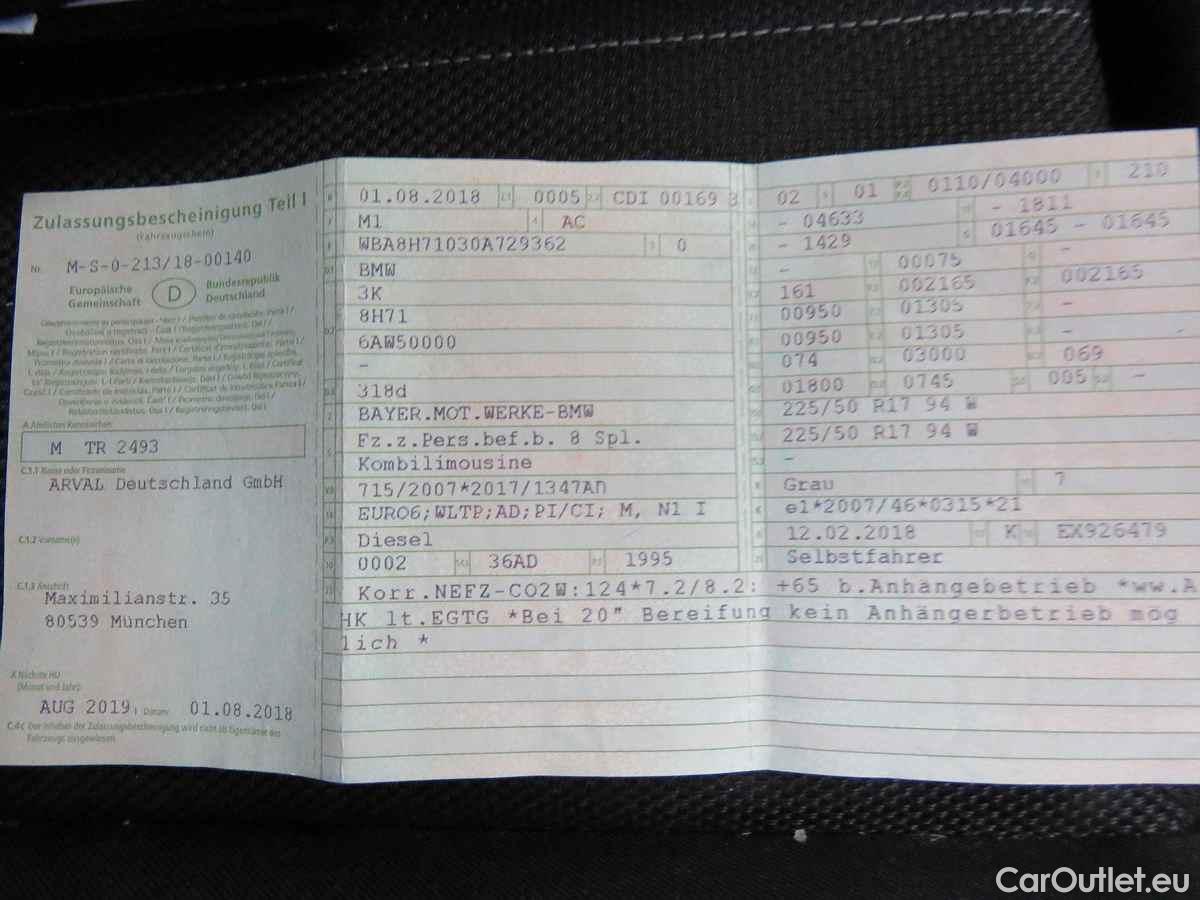 Zulassungsbescheinigung Teil I
(Fahrzeugschein)
Nr. M-S-0-213/18-00140
Europäische Gemeinschaft D Bundesrepublik Deutschland
A Amtliches Kennzeichen
M TR 2493
C.1.1 Name oder Firmenname
ARVAL Deutschland GmbH
C.1.2 Vorname(n)
C.1.3 Anschrift
Maximilianstr. 35
80539 München
X Nächste HU
(Monat und Jahr)
AUG 2019 I Datum 01.08.2018
C.4c Der Inhaber der Zulassungsbescheinigung wird nicht als Eigentümer des
Fahrzeugs ausgewiesen.
B 01.08.2018 2.1 0005 2.2 CDI 00169 3
J M1 4 AC
E WBA8H71030A729362 3 0
D.1 BMW
3K
8H71
D.2 6AW50000
-
D.3 318d
2 BAYER.MOT.WERKE-BMW
5 Fz.z.Pers.bef.b. 8 Spl.
Kombilimousine
V.9 715/2007*2017/1347AD
14 EURO6;WLTP;AD;PI/CI; M, N1 I
P.3 Diesel
10 0002 14.1 36AD P.1 1995
L 02 9 01 P.2 P.4 0110/04000 T 210
18 - 04633 19 - 1811
20 - 1429 G 01645 - 01645
12 - 13 00075 Q -
V.7 161 F.1 002165 F.2 002165
7.1 00950 7.2 01305 7.3 -
8.1 00950 8.2 01305 8.3 -
U.1 074 U.2 03000 U.3 069
O.1 01800 O.2 0745 S.1 005 S.2 -
15.1 225/50 R17 94 W
15.2 225/50 R17 94 W
15.3 -
R Grau 11 7
K e1*2007/46*0315*21
6 12.02.2018 17 K 16 EX926479
21 Selbstfahrer
22 Korr.NEFZ-CO2W:124*7.2/8.2: +65 b.Anhängebetrieb *ww.A
HK lt.EGTG *Bei 20" Bereifung kein Anhängerbetrieb mög
lich *
CarOutlet.eu